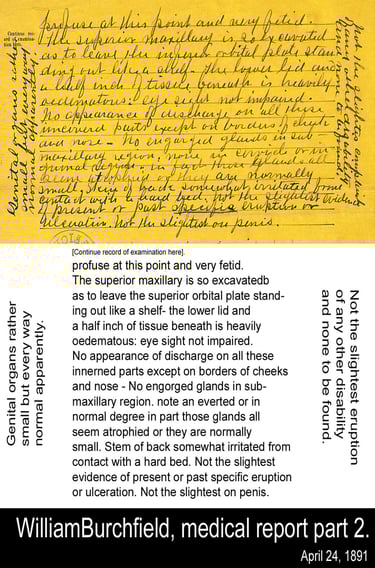 [Continue record of examination here].
profuse at this point and very fetid.
The superior maxillary is so excavated
as to leave the inferior orbital plate stan-
ding out like a shelf. The lower lid and
a half inch of tissue beneath is heavily
oedematous: eye sight not impaired.
No appearance of discharge on all these
uncovered parts except on borders of cheek
and nose - No engorged glands in sub-
maxillary region, none in cervical or in-
guinal region - in fact those glands all
seem atrophied or they are normally
small. Skin of back somewhat irritated from
contact with a hard bed. Not the slightest evidence
of present or past specific eruption or
ulceration. Not the slightest on penis.
Genital organs rather
small but every way
normal apparently.
Not the slightest
[Continue record of examination here].
profuse at this point and very fetid.
The superior maxillary is so excavatedb
as to leave the superior orbital plate stand-
ing out like a shelf- the lower lid and
a half inch of tissue beneath is heavily
oedematous: eye sight not impaired.
No appearance of discharge on all these
innerned parts except on borders of cheeks
and nose - No engorged glands in sub-
maxillary region. note an everted or in
normal degree in part those glands all
seem atrophied or they are normally
small. Stem of back somewhat irritated from
contact with a hard bed. Not the slightest
evidence of present or past specific eruption
or ulceration. Not the slightest on penis.
Genital organs rather
small but every way
normal apparently.
Not the slightest eruption
of any other disability
and none to be found.
WilliamBurchfield, medical report part 2.
April 24, 1891